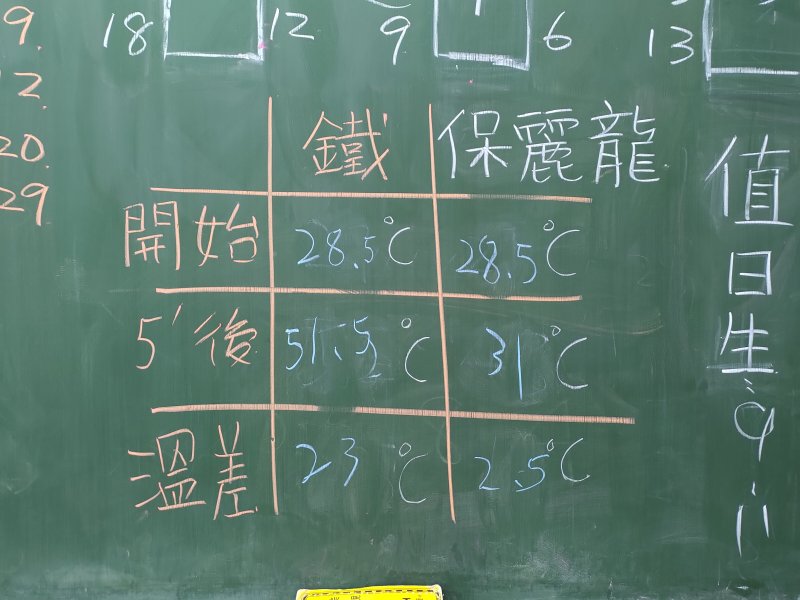 9.
12.
20.
29.
18 12
9 6
13
鐵 保麗龍
開始 28.5℃ 28.5℃
5'後 51.5℃ 31℃
溫差 23℃ 2.5℃
值日生:9.11